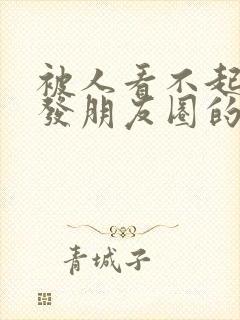 被人看不起
發朋友圈的
青城子